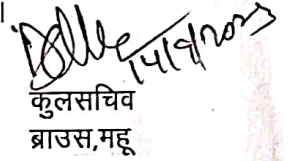 14/9/2023
कुलसचिव
ब्राउस,महू